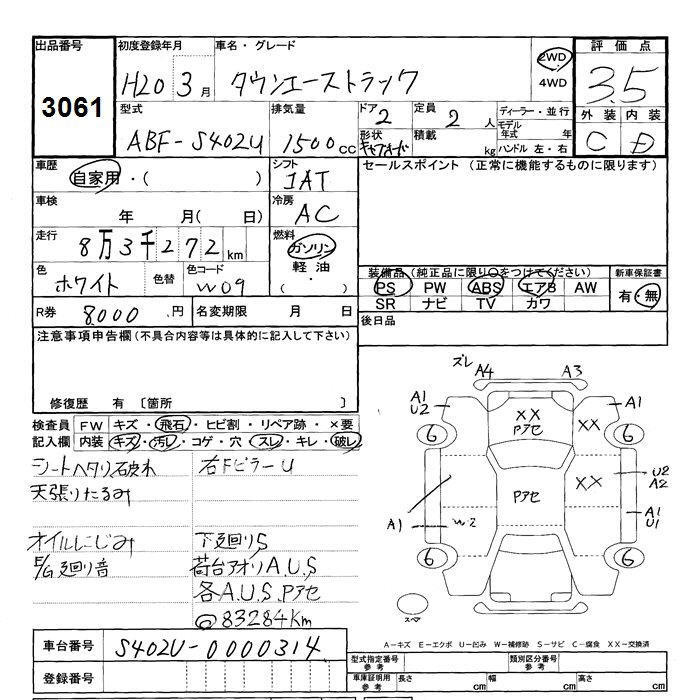 出品番号 初度登録年月 車名・グレード 2WD 評価点
3061 H20 3月 タウンエーストラック 4WD 3.5
型式 排気量 ドア 2 定員 2 人 ディーラー・並行 外装 内装
モデル年式 年
ABF-S402U 1500cc 形状 積載 kg ハンドル 左・右 C D
車歴 シフト セールスポイント (正常に機能するものに限ります)
自家用・( ) IAT
車検 冷房
年 月( 日) AC
走行 燃料
8万3千272km ガソリン
色 色替 色コード 軽油 装備品(純正品に限り○をつけてください) 新車保証書
ホワイト W09 ( ) PS PW ABS エアB AW 有・無
R券 8000円 名変期限 月 日 SR ナビ TV カワ
注意事項申告欄(不具合内容等は具体的に記入して下さい) 後日品
修復歴 有 〔箇所 〕
検査員 FW キズ・飛石・ヒビ割・リペア跡・×要
記入欄 内装 キズ・汚レ・コゲ・穴・スレ・キレ・破レ
シートヘタリ破れ 右FピラーU
天張りたるみ
オイルにじみ 下廻りS
E/G廻り音 荷台アオリA.U.S
各A.U.S.Pアセ
@83284Km
ズレ A4 A3
A1 U2 XX Pアセ XX A1
6 6
Pアセ XX U2 A2
A1 W2 A1 U1
6 6
スペア
A-キズ E-エクボ U-凹み W-補修跡 S-サビ C-腐食 XX-交換済
車台番号 S402U-0000314
型式指定番号 参考 類別区分番号 参考
登録番号 車庫証明用 参考 長さ cm 幅 cm 高さ cm